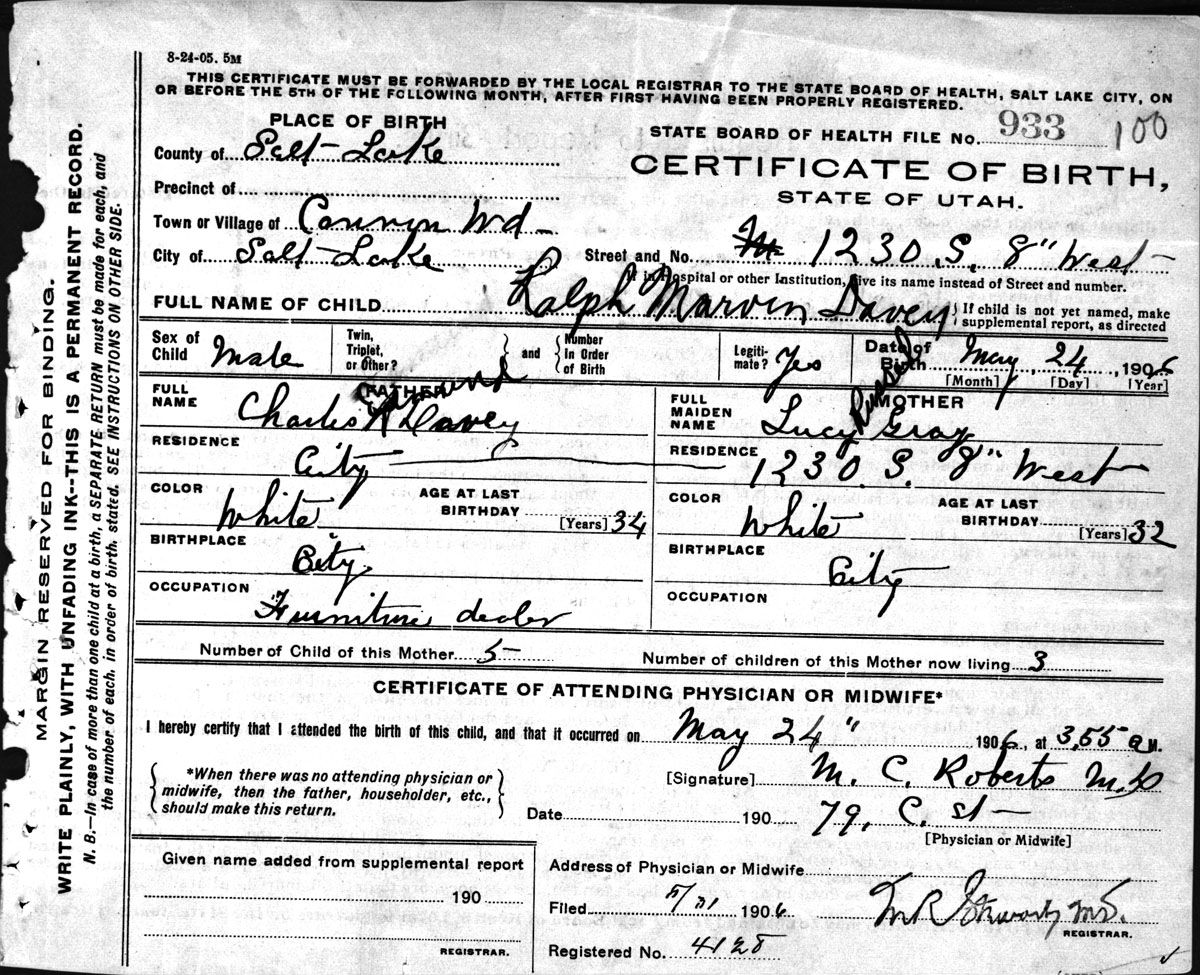 8-24-05. 5M
THIS CERTIFICATE MUST BE FORWARDED BY THE LOCAL REGISTRAR TO THE STATE BOARD OF HEALTH, SALT LAKE CITY, ON
OR BEFORE THE 5TH OF THE FOLLOWING MONTH, AFTER FIRST HAVING BEEN PROPERLY REGISTERED.
PLACE OF BIRTH
STATE BOARD OF HEALTH FILE No. 933 100
County of Salt Lake
CERTIFICATE OF BIRTH,
Precinct of
STATE OF UTAH.
Town or Village of Wd
City of Salt Lake Street and No. 1230 S. 8" West
If in Hospital or other Institution, give its name instead of Street and number.
FULL NAME OF CHILD Ralph Marvin Davey { If child is not yet named, make
supplemental report, as directed
Sex of Child Male Twin, Triplet, or Other? } and { Number In Order of Birth Legiti-mate? Yes Date of Birth May 24, 1906
[Month] [Day] [Year]
FATHER
FULL NAME Charles Davey
RESIDENCE City
COLOR White AGE AT LAST BIRTHDAY [Years] 34
BIRTHPLACE City
OCCUPATION Furniture dealer
MOTHER
FULL MAIDEN NAME Lucy Russell Gray
RESIDENCE 1230 S. 8" West
COLOR White AGE AT LAST BIRTHDAY [Years] 32
BIRTHPLACE City
OCCUPATION
Number of Child of this Mother 5 Number of children of this Mother now living 3
CERTIFICATE OF ATTENDING PHYSICIAN OR MIDWIFE*
I hereby certify that I attended the birth of this child, and that it occurred on May 24" 1906, at 3,55 a M.
{ *When there was no attending physician or
midwife, then the father, householder, etc.,
should make this return. }
[Signature] M. C. Roberts M.D
Date 190 79, C. st
[Physician or Midwife]
Given name added from supplemental report
190
REGISTRAR.
Address of Physician or Midwife
Filed 5/31 1906 M.D.
REGISTRAR.
Registered No. 4128
MARGIN RESERVED FOR BINDING.
WRITE PLAINLY, WITH UNFADING INK--THIS IS A PERMANENT RECORD.
N. B.—In case of more than one child at a birth, a SEPARATE RETURN must be made for each, and
the number of each, in order of birth, stated. SEE INSTRUCTIONS ON OTHER SIDE.